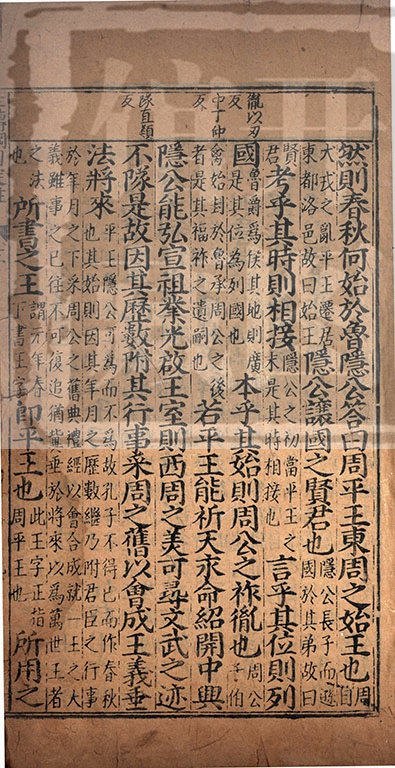 胤以刃
反
中丁仲
反
隊直類
反
然則春秋何始於魯隱公答曰周平王東周之始王也周自
犬戎之亂平王遷居東都洛邑故曰始王隱公讓國之賢君也隱公長子而遜國於其弟故曰
賢君考乎其時則相接隱公之初當平王之末是其時相接也言乎其位則列
國魯爵爲侯其地則廣是其位爲列國也本乎其始則周公之祚胤也周公子伯
禽始封於魯承周公之後者是其福祚之遺嗣也若平王能祈天永命紹開中興
隱公能弘宣祖業光啟王室則西周之美可尋文武之迹
不隊是故因其歷數附其行事采周之舊以會成王義垂
法將來平王隱公可爲而不爲故孔子不得已而作春秋也其始則因其年月之歷數繼乃附君臣之行事
於年月之下采周公之舊典禮經以會合成就一王之大義雖事之已往不可復追猶當垂於將來以爲萬世王者
之法也所書之王謂元年春下書王字即平王也此王字正指周平王也所用之